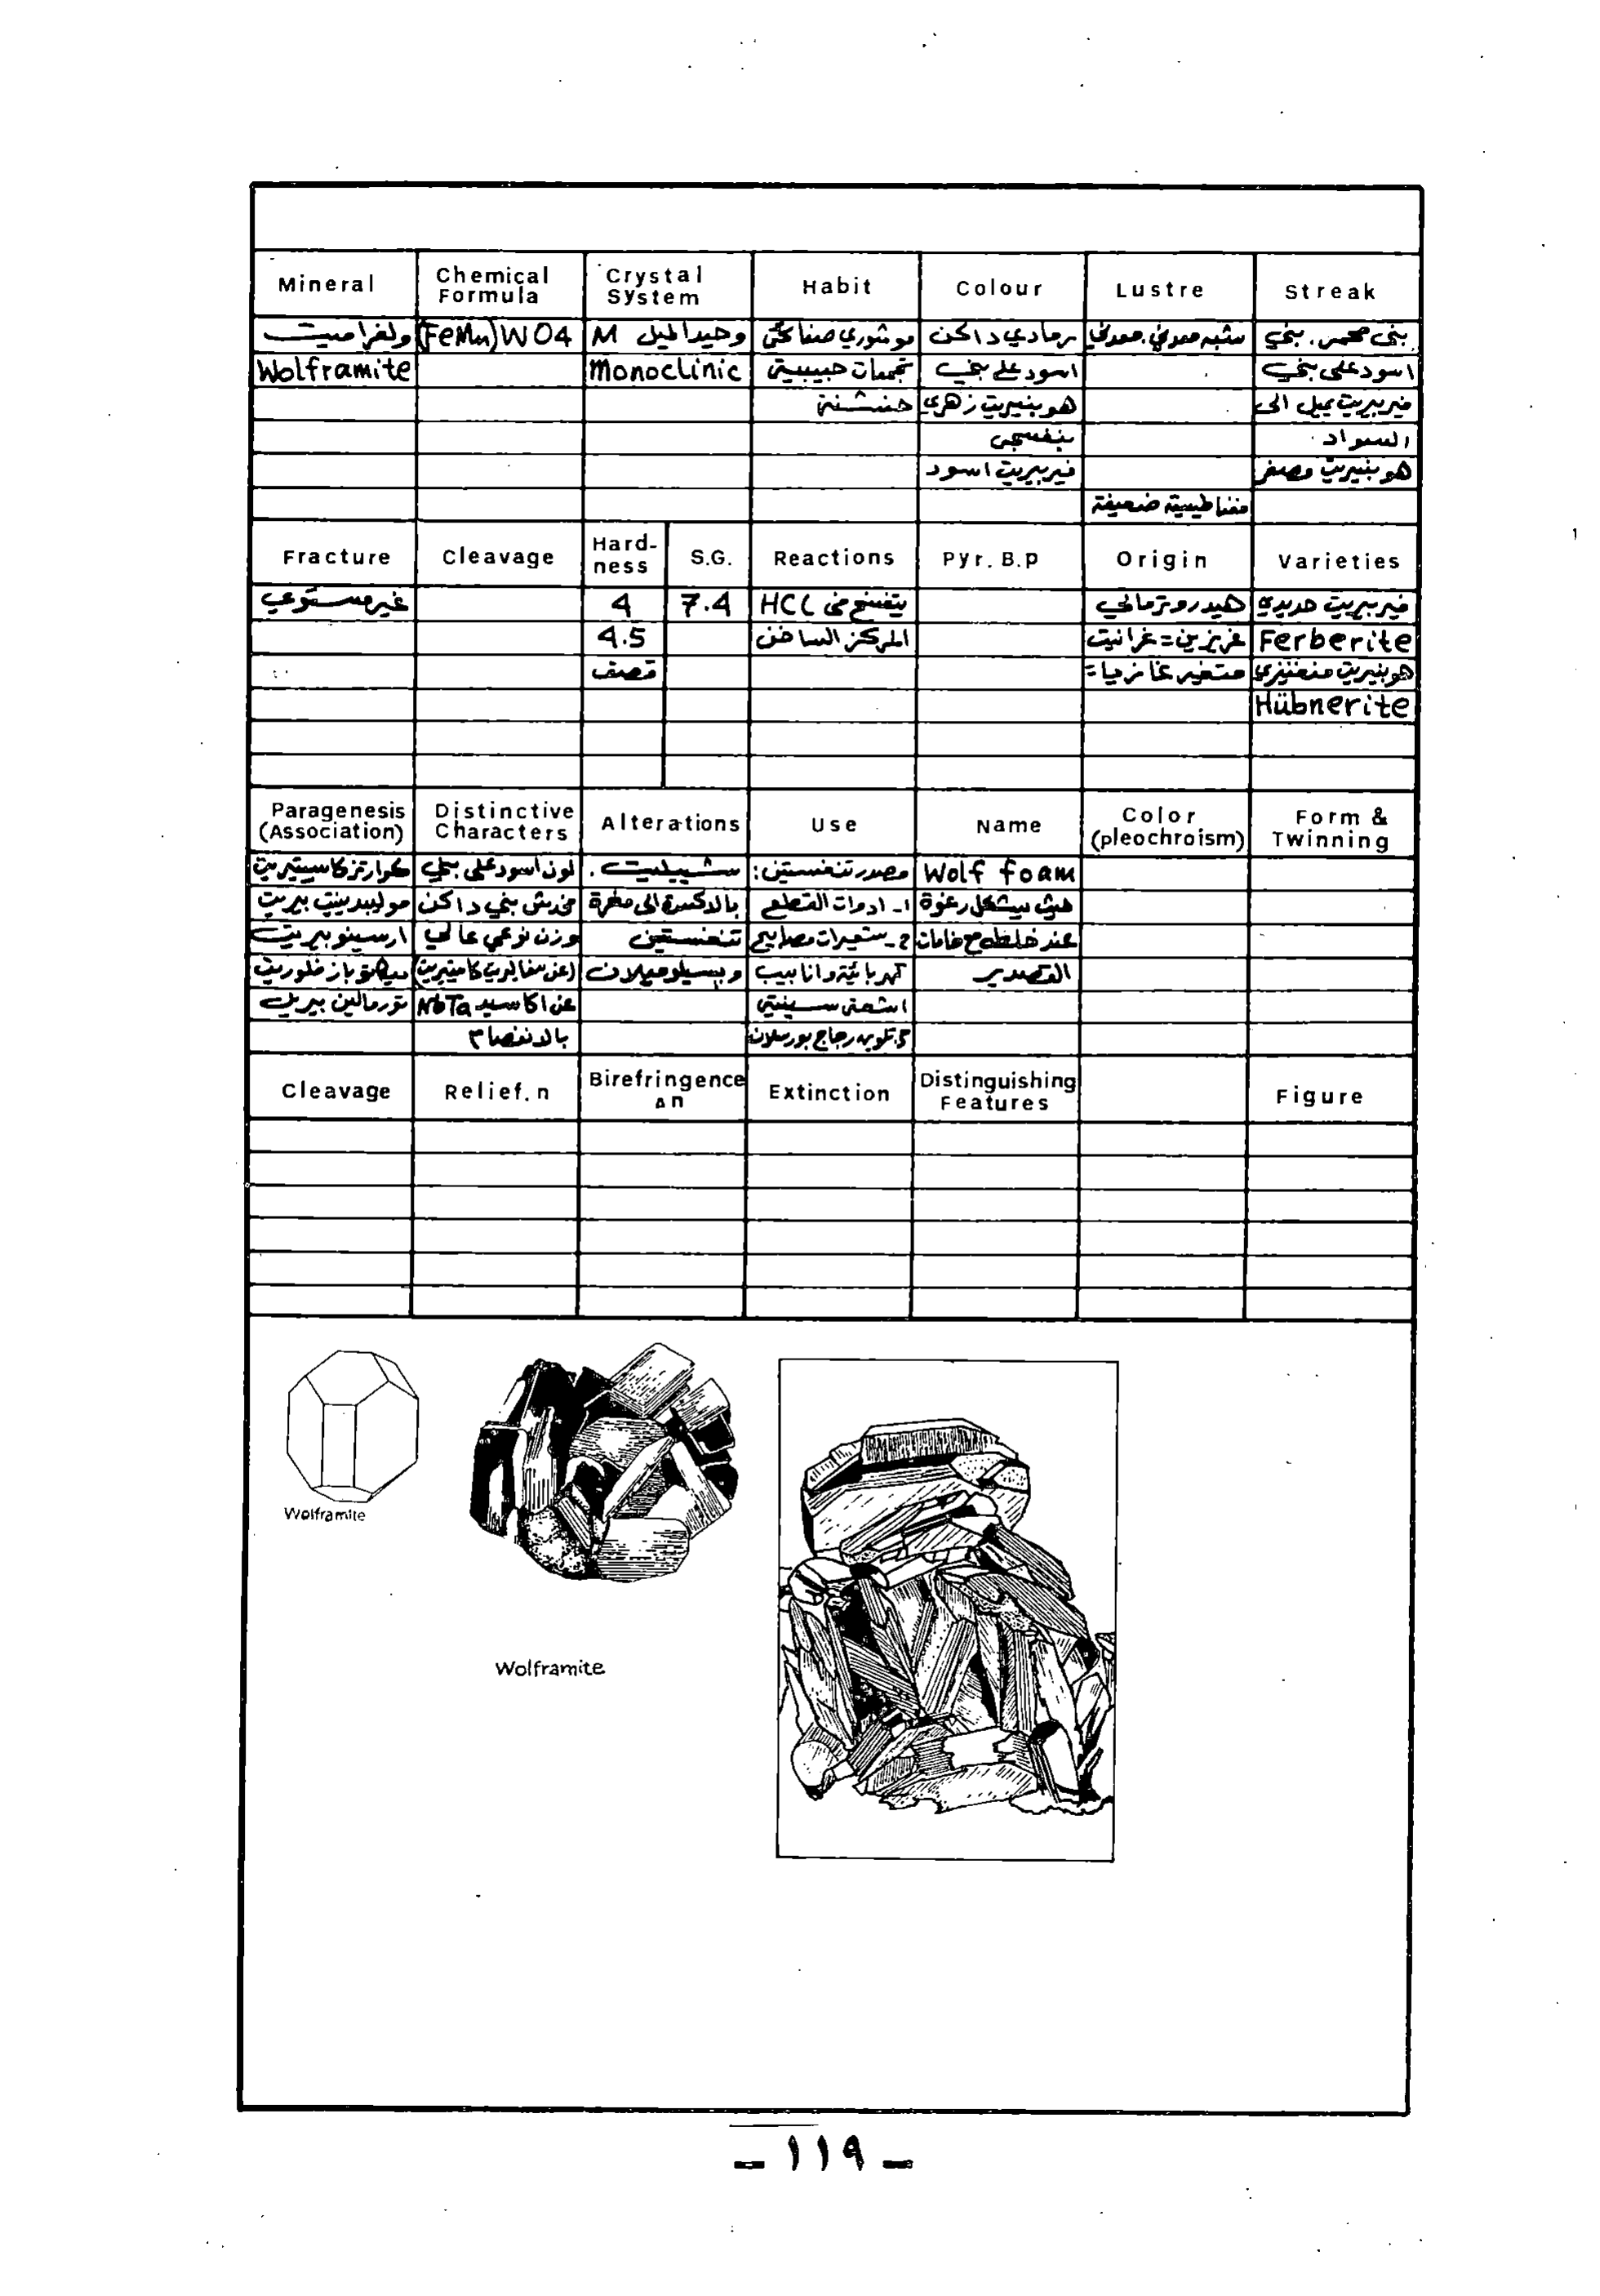 Mineral Chemical Formula Crystal System Habit Colour Lustre Streak
ولفراميت (FeMn)WO4 وحيد الميل M موشوري صفائحي رمادي داكن شبه معدني. معدني بني محمر. بني
Wolframite Monoclinic تجمعات حبيبية اسود على بني اسود على بني
خشنة هوبنيريت زهري فيربيريت يميل الى
بنفسجي السواد
فيربيريت اسود هوبنيريت مصفر
مغناطيسية ضعيفة
Fracture Cleavage Hard-ness S.G. Reactions Pyr. B.p Origin Varieties
غير مستوي 4 7.4 يتفسخ في HCL هيدروترمالي فيربيريت حديدي
4.5 المركز الساخن غريزين = غرانيت Ferberite
قصف متغير غازياً = هوبنيريت منغنيزي
Hübnerite
Paragenesis (Association) Distinctive Characters Alterations Use Name Color (pleochroism) Form & Twinning
كوارتز كاسيتيريت لون اسود على بني شييليت. مصدر تنغستين: Wolf foam
موليبدينيت بيريت مخدش بني داكن بالاكسدة الى مغرة ١- ادوات القطع حيث يشكل رغوة
ارسينوبيريت وزن نوعي عالي تنغستين ٢- شعيرات مصابيح عند خلطه مع خامات
توباز فلوريت وبسيلوميلان كهربائية وانابيب القصدير
تورمالين بيريل عن اكاسيد NbTa اشعة سينية
بالانفصام ٣. تلوين زجاج بورسلان
Cleavage Relief. n Birefringence Δn Extinction Distinguishing Features Figure
Wolframite
Wolframite
- ١١٩ -